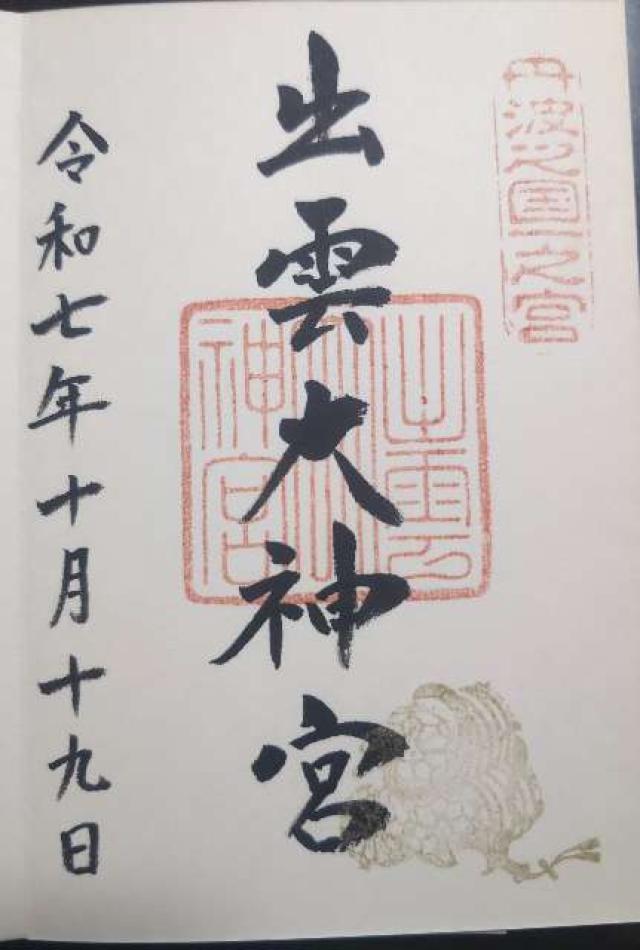 丹波之国一之宮
出雲大神宮
出雲大神宮
令和七年十月十九日